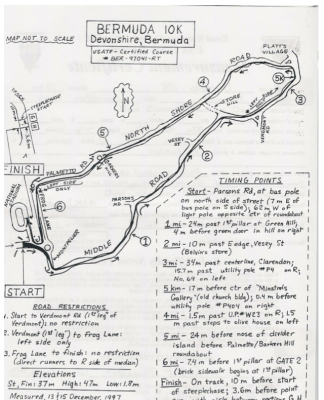 BERMUDA 10K
Devonshire, Bermuda
USATF - Certified Course
# BER-97041-RT
MAP NOT TO SCALE
N
PLATT'S
VILLAGE
ROAD
5K
STORE
HILL
NORTH SHORE
VERMONT
RD
VESEY ST
PALMETTO RD
PARSONS
RD
ROAD
MIDDLE
FROG LANE
LEFT SIDE
ONLY
FINISH
START
1
2
3
4
5
6
TIMING POINTS
Start - Parsons Rd, at bus pole
on north side of street (7m E of
bus pole on S side); 62m W of
light pole opposite ctr of roundabout
1 mi - 24m past 1st pillar at Green Hill,
4m before green door in hill on right
2 mi - 10m past E edge, Vesey St
(Belvin's store)
3 mi - 34m past centerline, Clarendon;
15.7m past utility pole #P4 on R;
No. 64 on left
5km - 17m before ctr of "Minstrels
Gallery" (old church bldg); 0.4m before
utility pole #P404 on right
4 mi - 1.5m past U.P. #WE3 on R; 1.5
m past steps to olive house on left
5 mi - 24m before nose of divider
island before Palmetto/Barkers Hill
roundabout
6 mi - 7.4m before 1st pillar at GATE 2
(brick sidewalk begins at 1st pillar)
Finish - On track, 10m before start
of steeplechase; 3.6m before point
ROAD RESTRICTIONS
1. Start to Vermont Rd (1st leg of
Vermont); no restriction
2. Vermont (1st leg) to Frog Lane:
left side only
3. Frog Lane to finish: no restriction
(direct runners to R side of median)
Elevations
St, Fin: 37m High: 47m Low: 1.8m
Measured, 13 & 15 December, 1997